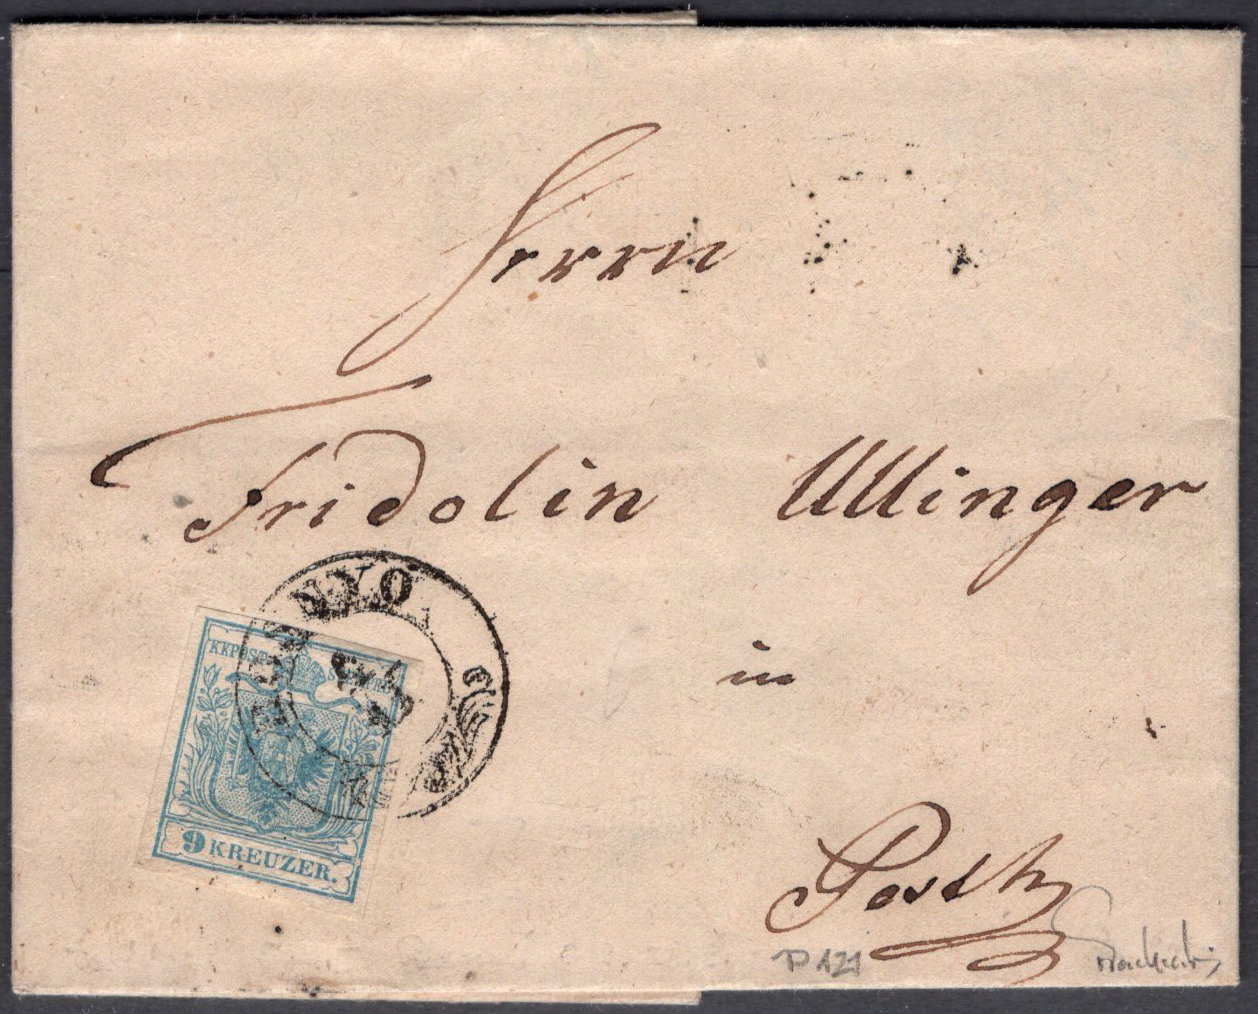 Herrn
Fridolin Ullinger
in
Pesth
KKPOST
9 KREUZER.
P 121